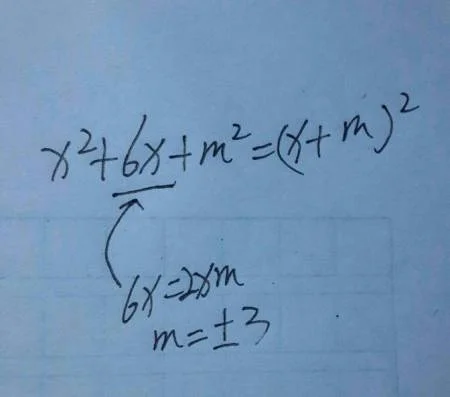 x²+6x+m²=(x+m)²
6x=2xm
m=±3